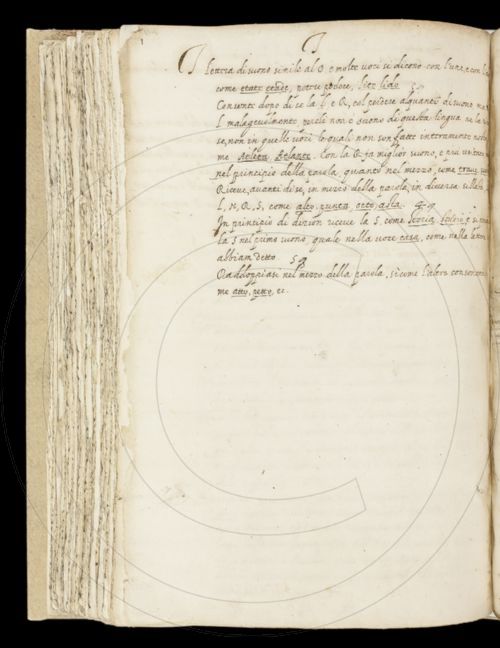 T
T Lettera di suono simile al D e molte voci si dicono con l'una, e con l'
come etate etade, potere podere, lito lido
Consente dopo di se la L e R, col perdere alquanto di suono ma
L malagevolmente perche non è suono di questa lingua ne la
se, non in quelle voci le quali non son fatte interamente nostre
me Atleta, Atlante. Con la R fa miglior suono, e piu
nel principio della parola, quanto nel mezzo, come trave,
Riceve, avanti di se, in mezzo della parola, in diversa sillaba
L, N, R, S, come alto, punta, orto, asta.
In principio di dizion riceve la S, come storia,
la S nel primo suono, quale nella voce casa, come nella lettera
abbiam detto.
Raddoppiasi nel mezzo della parola, sicome l'altre consonanti
me atto, petto, ec.